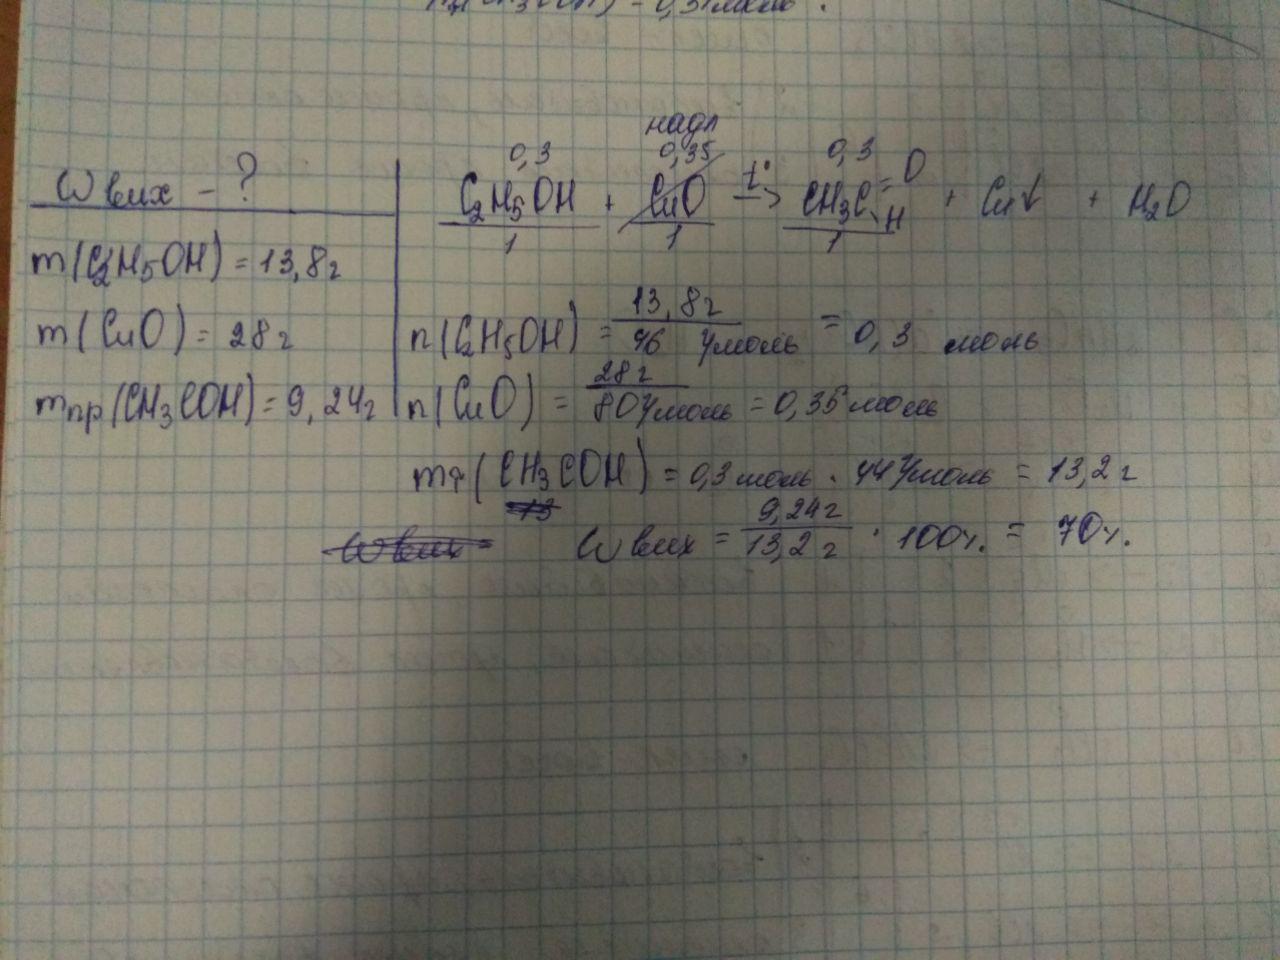 W вих - ?
m(C2H5OH) = 13,8г
m(CuO) = 28г
mпр(CH3COH) = 9,24г
надл
0,3 0,35 0,3
C2H5OH + CuO t° → CH3C=O H + Cu↓ + H2O
1 1 1
n(C2H5OH) = 13,8г / 46 г/моль = 0,3 моль
n(CuO) = 28г / 80г/моль = 0,35моль
mт(CH3COH) = 0,3 моль · 44г/моль = 13,2г
W вих = 9,24г / 13,2г · 100%. = 70%.